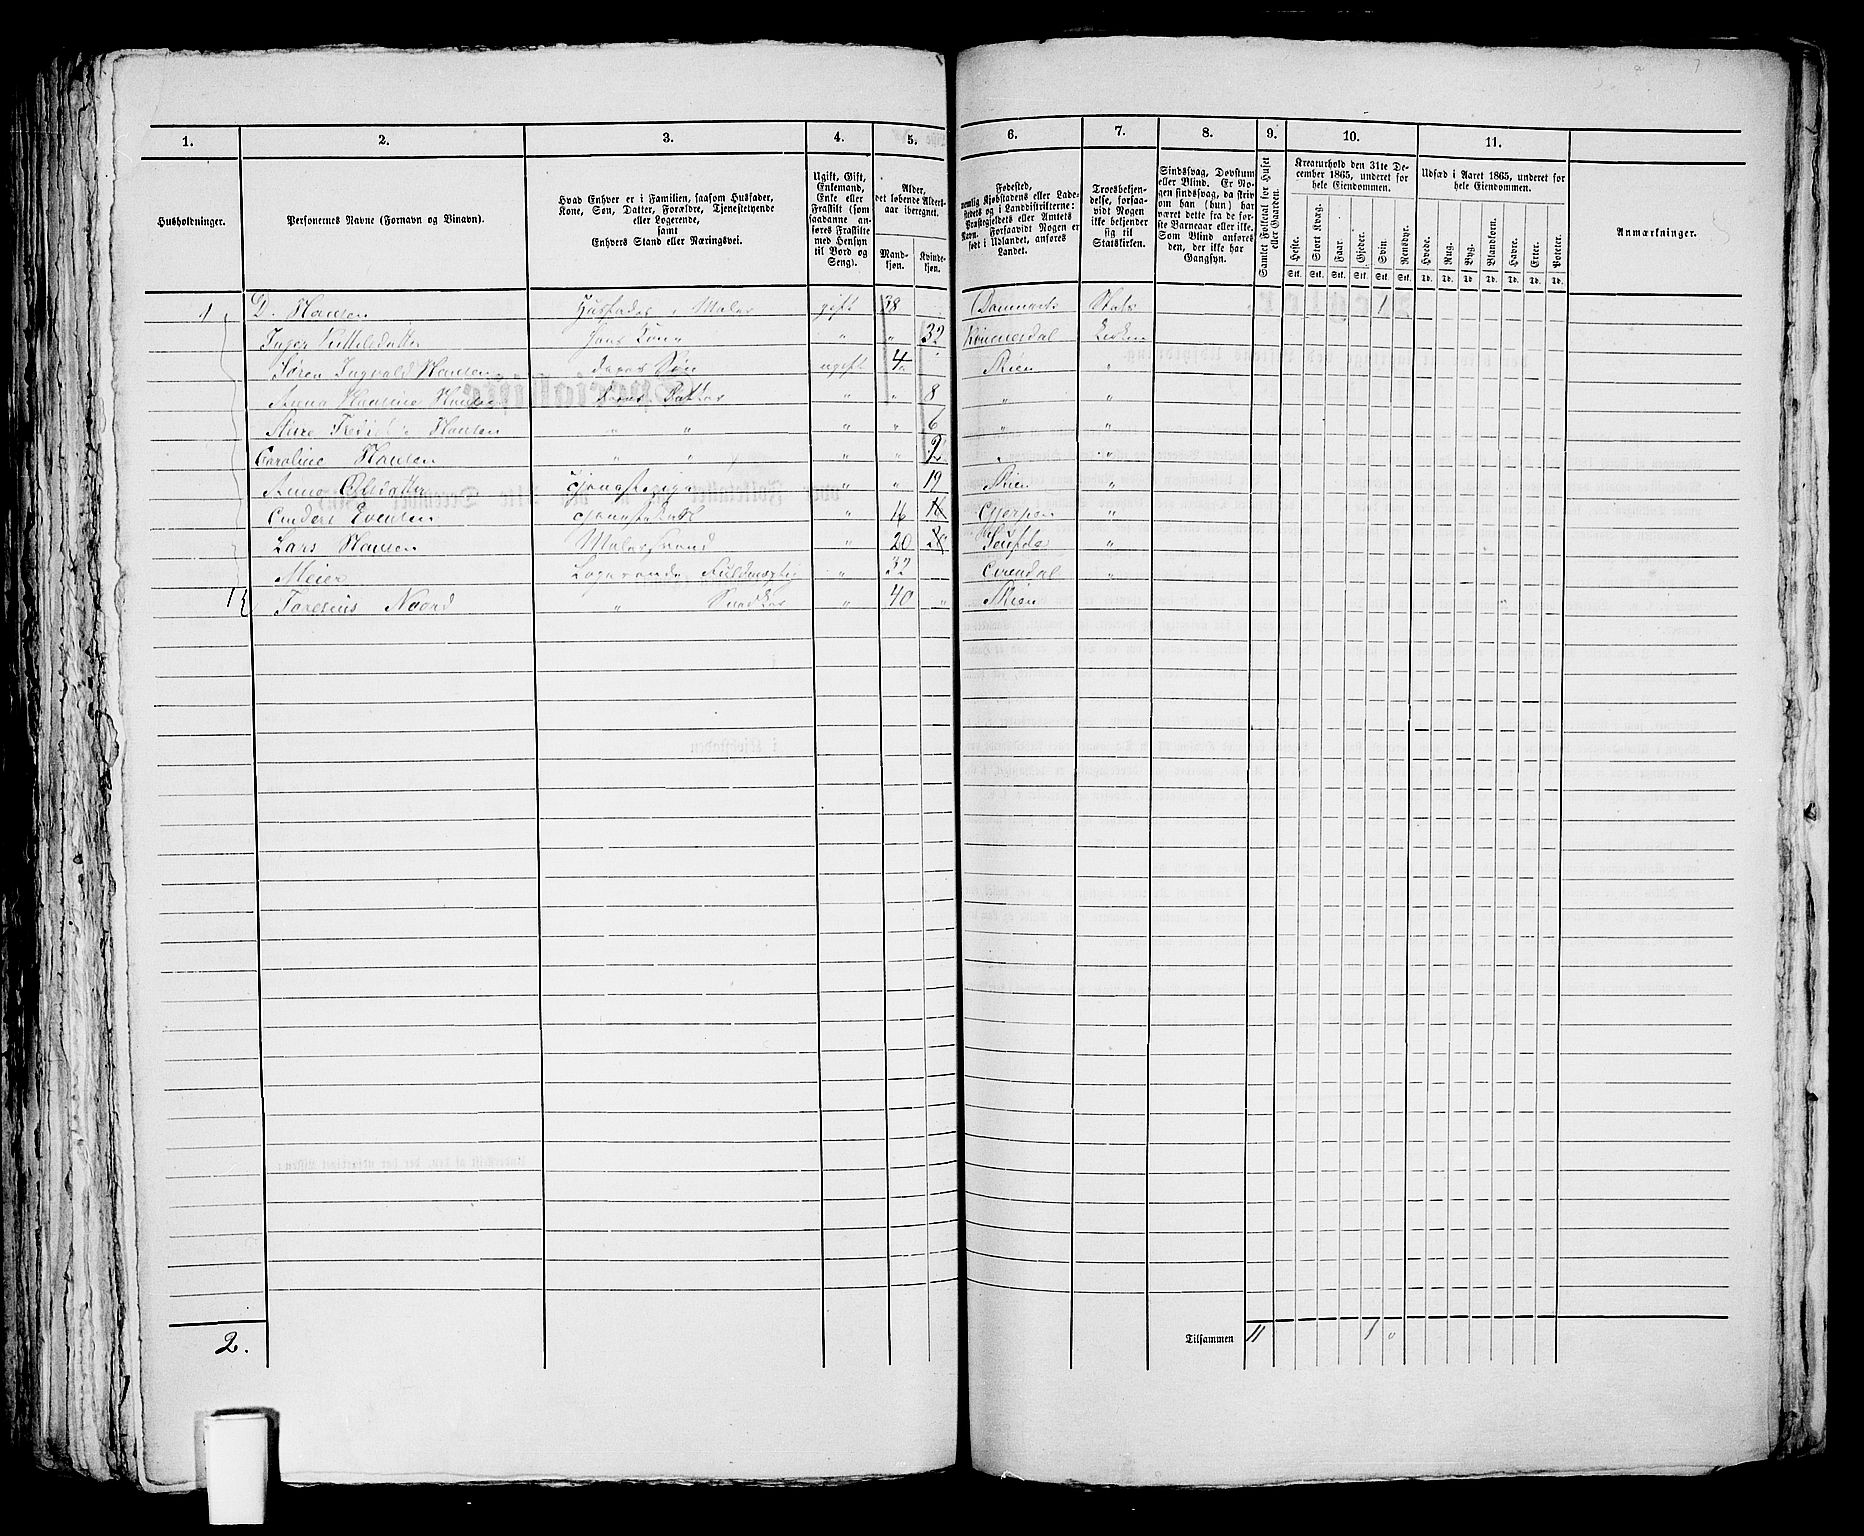 1. 2. 3. 4. 5. 6. 7. 8. 9. 10. 11.
Husholdninger.
Personernes Navne (Fornavn og Binavn).
Hvad Enhver er i Familien, saasom Husfader,
Kone, Søn, Datter, Forældre, Tjenestetyende
eller Logerende,
samt
Enhvers Stand eller Næringsvei.
Ugift, Gift,
Enkemand,
Enke eller
Fraskilt (som
saadanne an-
føres Fraskilte
med Hensyn
til Bord og
Seng).
Alder,
det løbende Alders-
aar iberegnet.
Mand-
kjøn.
Kvinde-
kjøn.
Fødested,
nemlig Kjøbstadens eller Lade-
stedets og i Landdistrikterne:
Præstegjeldets eller Amtets
Navn. Forsaavidt Nogen er
født i Udlandet, anføres
Landet.
Troesbekjen-
delse, forsaa-
vidt Nogen
ikke bekjender
sig til
Statskirken.
Sindssvag, Døvstum
eller Blind. Er No-
gen sindssvag, da skriv
om han (hun) har
været dette fra de før-
ste Barneaar eller ikke.
Som Blind anføres
den, der ikke har
Gangsyn.
Samlet Folketal for Huset
eller Gaarden.
Kreaturhold den 31te De-
cember 1865, underet for
hele Eiendommen.
Heste. Stort Kvæg. Faar. Gjeder. Svin. Rensdyr.
Stk. Stk. Stk. Stk. Stk. Stk.
Udsæd i Aaret 1865, underet for
hele Eiendommen.
Hvede. Rug. Byg. Blandkorn. Havre. Erter. Poteter.
Td. Td. Td. Td. Td. Td. Td.
Anmærkninger.
1 D. Hansen Husfader, Maler gift 38 Danmark Stats 1
Inger Kittelsdatter Hans Kone " " 32 Kirken
Søren Ingvald Hansen deres Søn ugift 4 " Skien "
Anna Hansine Hansen deres Datter " " 8 " "
Hansen " " " " 6 " "
Caroline Hansen " " " " 2 " "
Anna Olsdatter Tjenestepige " " 19 Skien "
Anders Evensen Tjenestekarl " 16 16 Gjerpen "
Lars Hansen Malersvend " 20 20 "
Meier Logerende " 32 "
1 Naard " Snedker " 40 " Skien "
2.
Tilsammen 11 1 "